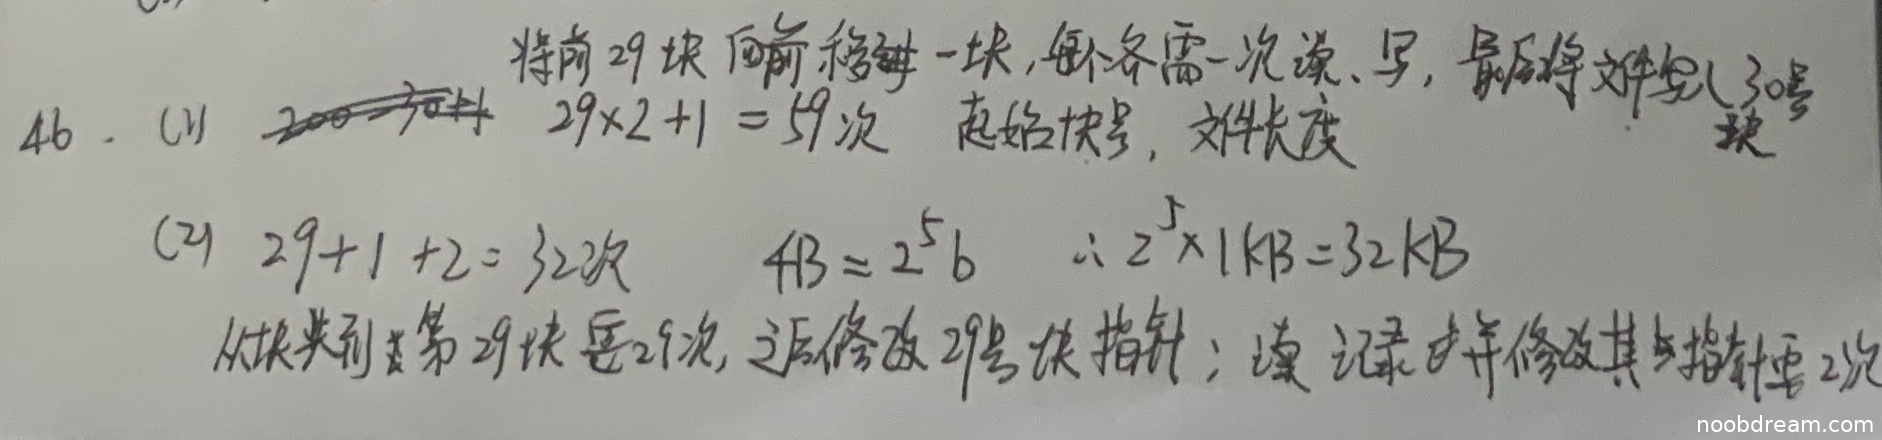 将前29块向前移动一块,每个各需一次读、写,最后将文件写入30号块
46. (1) 29×2+1=59次 起始块号,文件长度
(2) 29+1+2=32次 4B=2⁵b ∴2⁵×1KB=32KB
从块头到第29块要29次,之后修改29号块指针;读记录块并修改其指针需2次
noobdream.com